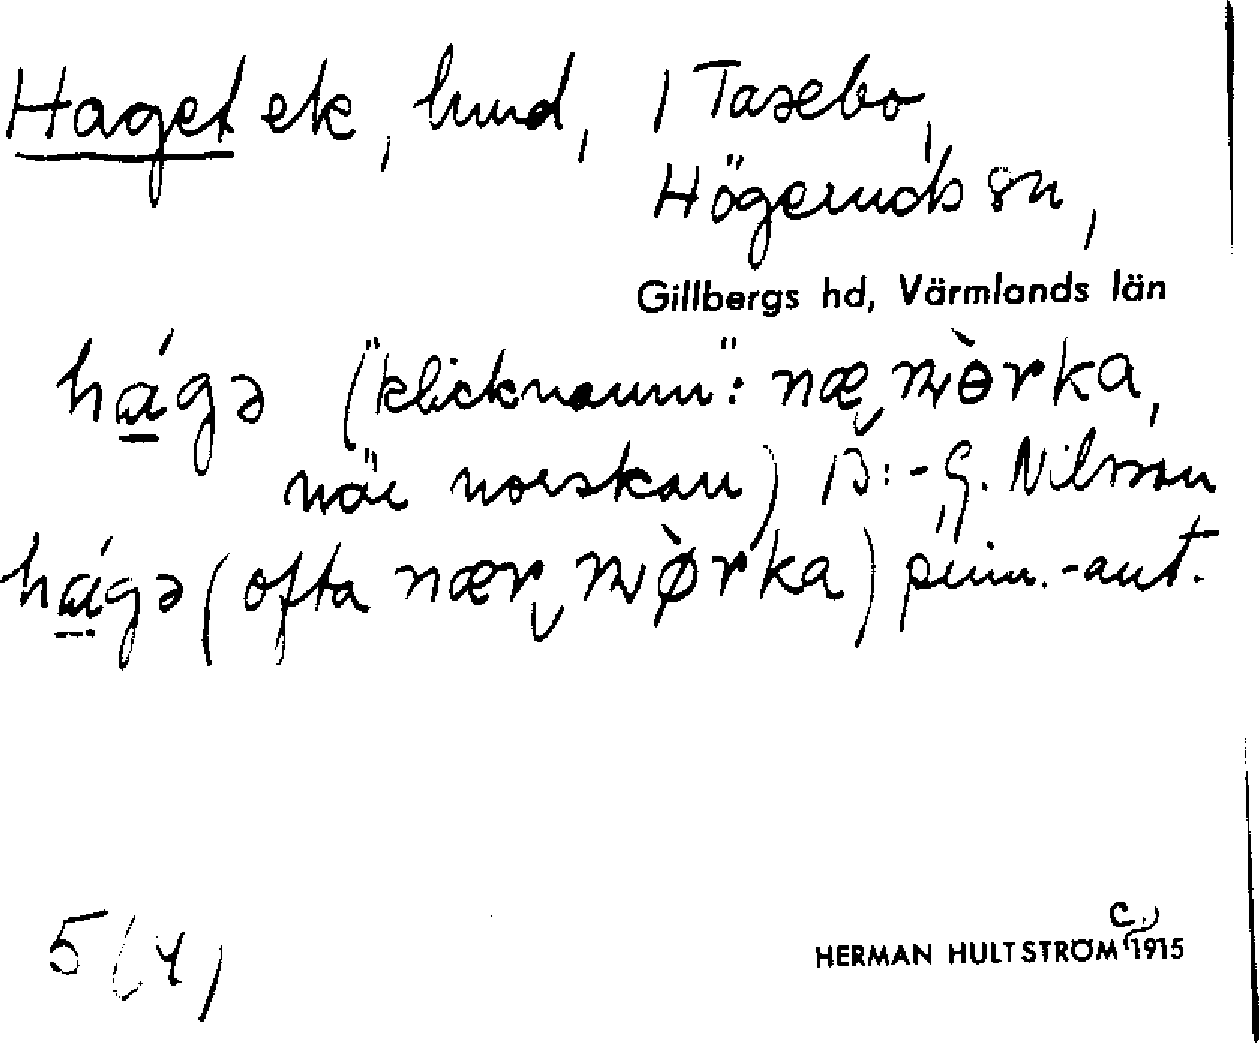 Haget ek, lund, i Tasebo,
Högeruds sn,
Gillbergs hd, Värmlands län
hágə ("klicknamn": næ mòrka,
när norskan) B:-G. Nilsson
hágə (ofta nær mø̀rka) prim.-ant.
5 (4)
c.
HERMAN HULTSTRÖM (1915